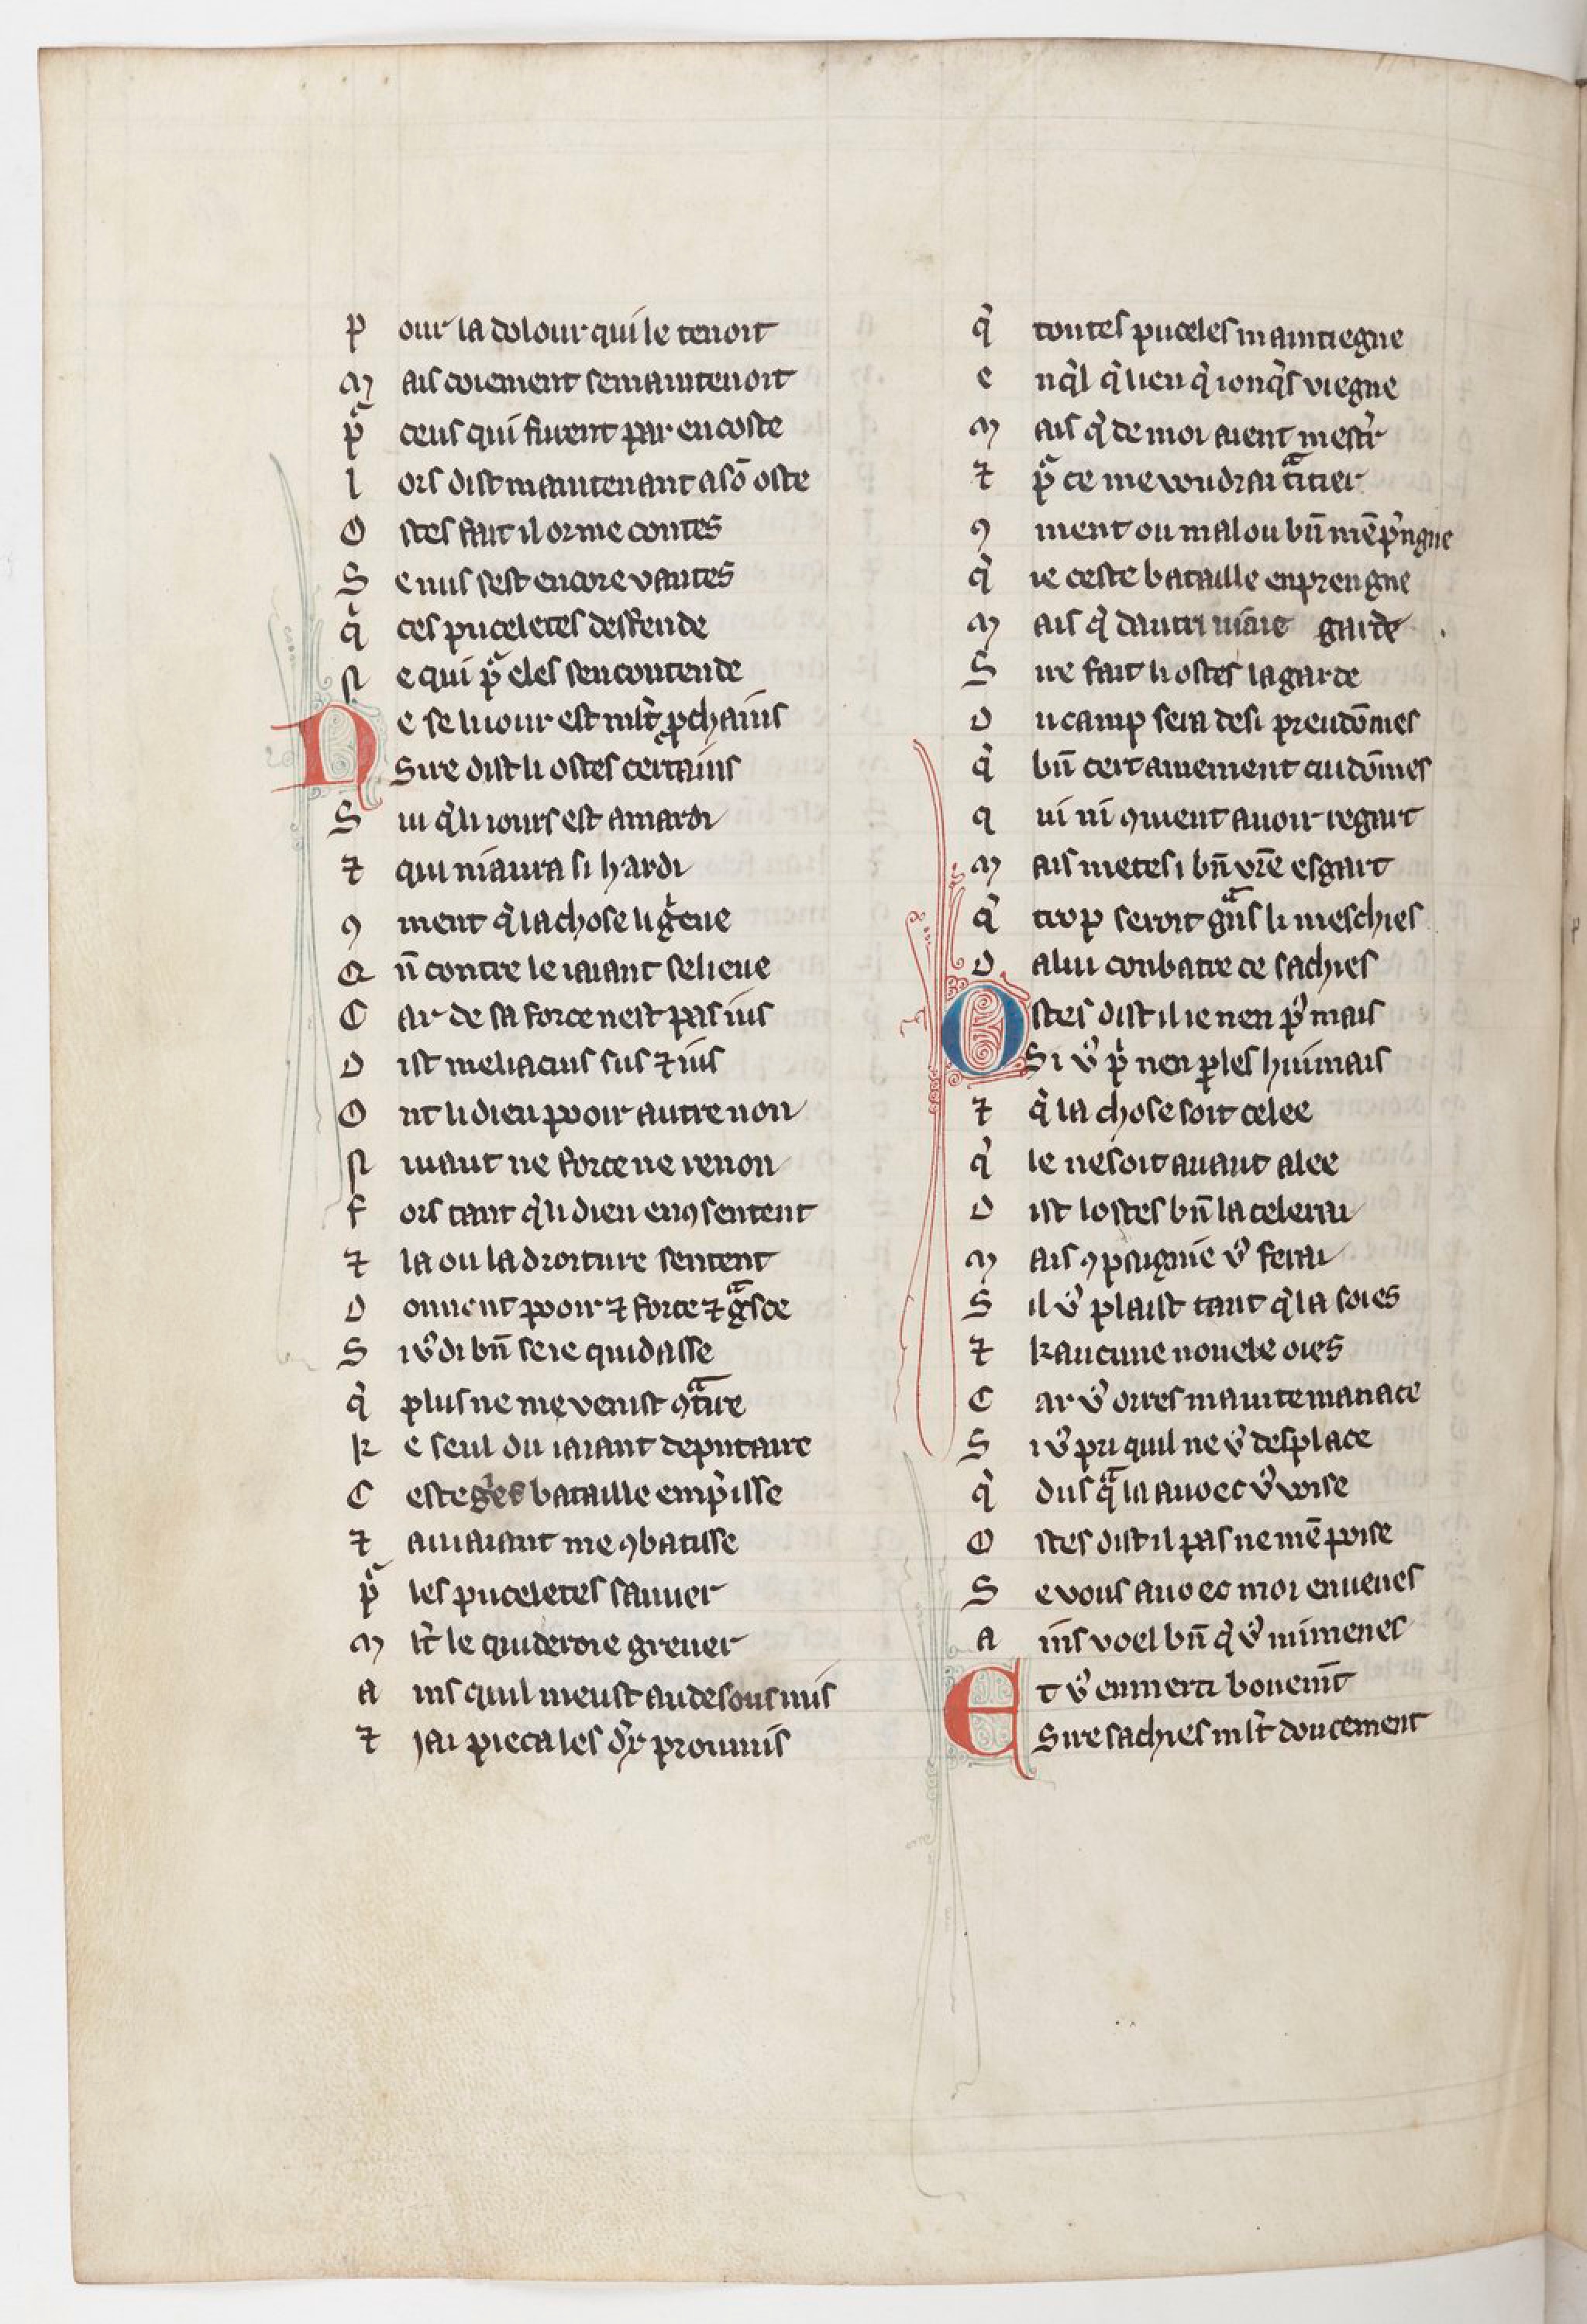 P our la dolour qui le tenoit
M ais coiement se maintenoit
pͣ ceus qui furent par en coste
l ors dist maintenant a sō oste
O stes fait il or me contes
S e nus sest encore vantes
q̾ ces puceletes deffende
N e qui pͣ eles sen contende
N e se li iour est ml̾t ꝓchains
Sire dist li ostes certains
S ui q̾ li iours est a mardi
⁊ qui niaura si hardi
ꝯ ment q̾ la chose li g̾eue
Q n̄ contre le iaiant se lieue
C ar de sa force nest pas ius
D ist meliacins sus ⁊ ius
O nt li dieu pooir autre non
N uiaut ne force ne renon
F ors tant q̾ li dieu en ꝯsentent
⁊ la ou la droiture sentent
D onnent pooir ⁊ force ⁊ gͣsce
S i v̾ di bn̄ se ie quidasse
q̾ plus ne me venist ꝯtͣire
K e seul du iaiant deputaire
C este g̾es bataille emp̾isse
⁊ au iaiant me ꝯbatisse
pͣ les puceletes sauuer
M lt̾ le quideroie greuer
A ins quil meust au desous mis
⁊ jai pieca les dx̾ proumis
q̾ toutes puceles maintiegne
E nq̾l q̾ lieu q̾ ionq̾s viegne
M ais q̾ de moi aient mest̾
⁊ pͣ ce me voudrai tͣitier
ꝯ ment ou mal ou bn̄ mē p̾ngne
q̾ ie ceste bataille enprengne
M ais q̾ dautri niaie garde
S ire fait li ostes la garde
D u camp sera desi preudōmes
q̾ bn̄ certainement cuidōmes
q ui ni ꝯuient auoir regart
M ais metes i bn̄ vr̄e esgart
q̾ trop seroit gͣns li meschies
D a lui conbatre ce sachies
O stes dist il ie nen p̾ mais
Si v̾ p̾ nen ꝑles huimais
⁊ q̾ la chose soit celee
q̾ le ne soit auant alee
D ist lostes bn̄ la celerai
M ais ꝯpaignie v̾ ferai
S il v̾ plaist tant q̾ la soies
⁊ kaucune nouele oies
C ar v̾ orres mainte manace
S i v̾ pri quil ne v̾ desplace
q̾ dusqͣ la auoec v̾ voise
O stes dist il pas ne mē poise
S e vous auoec moi en uenes
A ins voel bn̄ q̾ v̾ mi menes
E t v̾ en merci bonemt̄
Sire sachies mlt̾ doucement